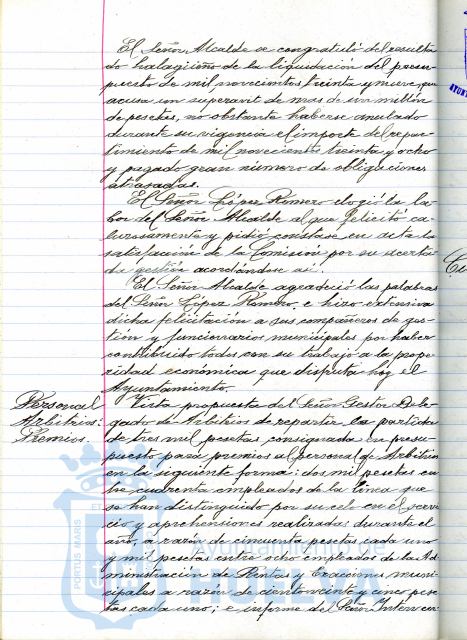 El Señor Alcalde se congratuló del resulta
do halagüeño de la liquidación del presu-
puesto de mil novecientos treinta y nueve que
acusa un superavit de mas de un millón
de pesetas, no obstante haberse anulado
durante su vigencia el importe del repar-
timiento de mil novecientos treinta y ocho
y pagado gran número de obligaciones
atrasadas.
El Señor López Romero elogió la la-
bor del Señor Alcalde al que felicitó ca-
lurosamente y pidió constase en acta la
satisfacción de la Comisión por su acerta
da gestión acordándose así.
El Señor Alcalde agradeció las palabras
del Señor López Romero, e hizo extensiva
dicha felicitación a sus compañeros de ges-
tión y funcionarios municipales por haber
contribuido todos con su trabajo a la prospe
ridad económica que disfruta hoy el
Ayuntamiento.
Personal
Arbitrios:
Premios.
Vista propuesta del Señor Gestor Dele-
gado de Arbitrios de repartir la partida
de tres mil pesetas consignada en presu-
puesto para premios al personal de Arbitrios
en la siguiente forma: dos mil pesetas en
tre cuarenta empleados de la linea que
se han distinguido por su celo en el servi
cio y aprehensiones realizadas durante el
año, a razón de cincuenta pesetas cada uno
y mil pesetas entre ocho empleados de la Ad
ministración de Rentas y Exacciones muni-
cipales a razón de ciento veinte y cinco pese
tas cada uno; e informe del Señor Interven-
PORTUS MARIS
ET
Ayuntamiento de